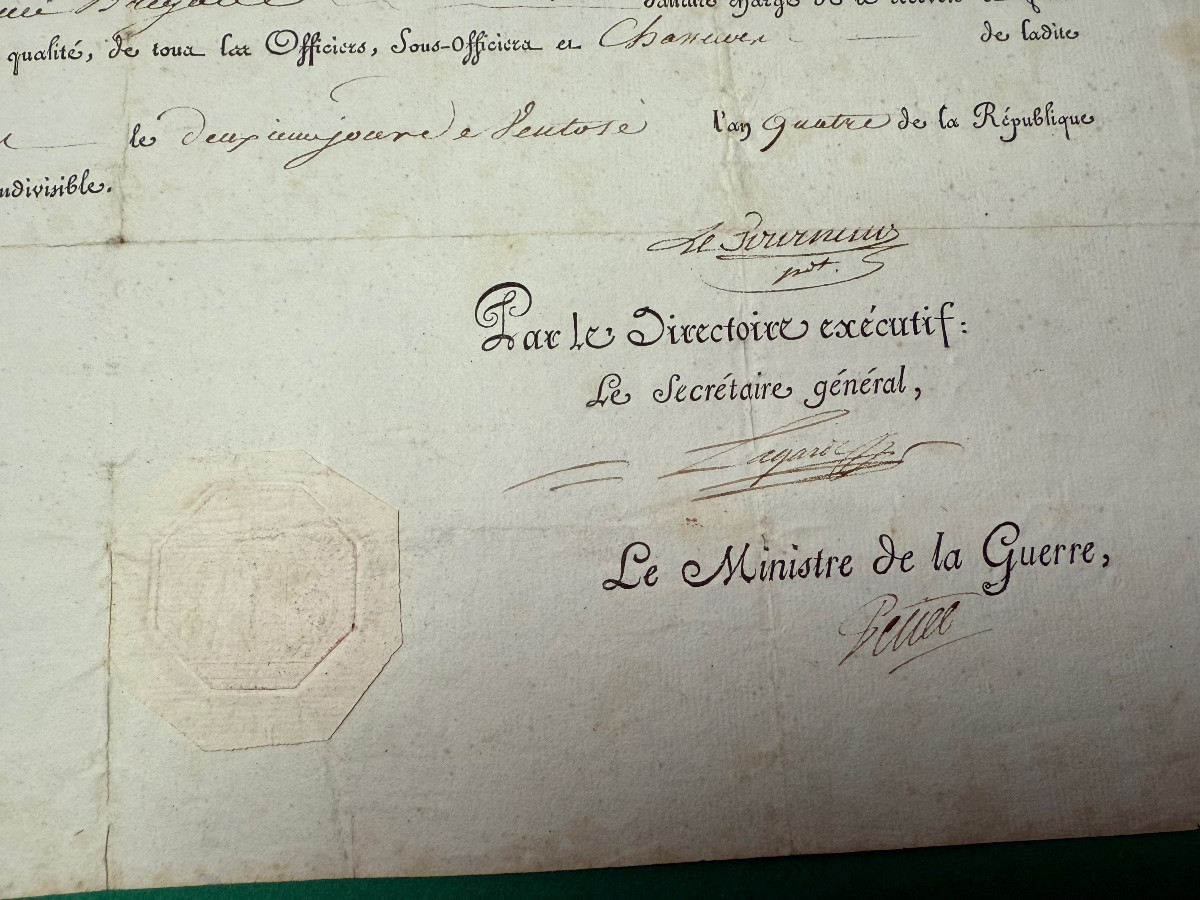 Brigade
qualité, de tous les Officiers, Sous-Officiers et Chasseurs de ladite
le deuxieme jour de Ventose l'an quatre de la République
indivisible.
Le Tourneur
pdt.
Par le Directoire exécutif:
Le Secrétaire général,
Lagarde
Le Ministre de la Guerre,
Petiet